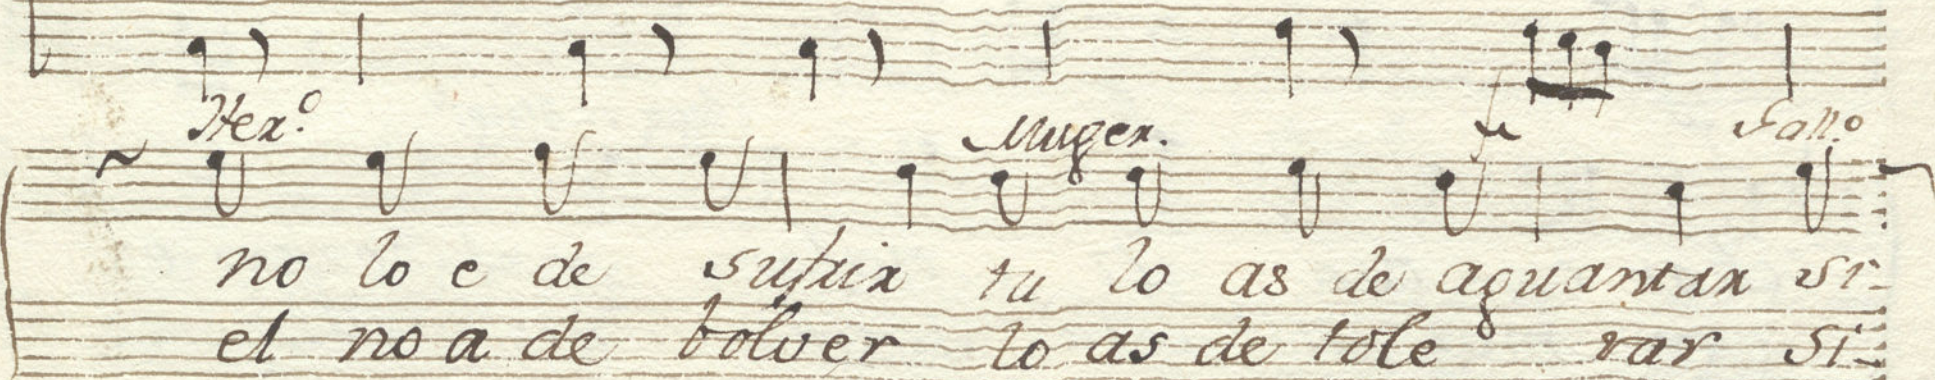 Her.º Muger. fe
no lo e de sufrir tu lo as de aguantar si-
el no a de bolver lo as de tole rar si-